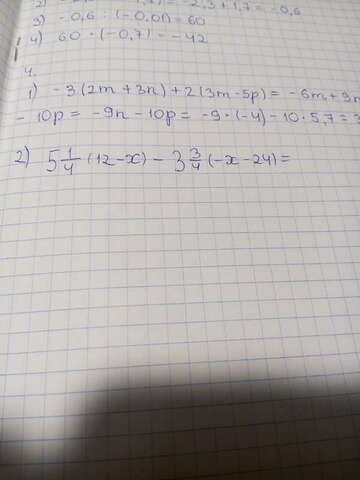 3) -0,6 : (-0,01) = 60
4) 60 · (-0,7) = -42
4.
1) -3(2m + 3n) + 2(3m - 5p) = -6m + 9n
- 10p = -9n - 10p = -9 · (-4) - 10 · 5,7 = 3
2) 5 1/4 (12 - x) - 3 3/4 (-x - 24) =